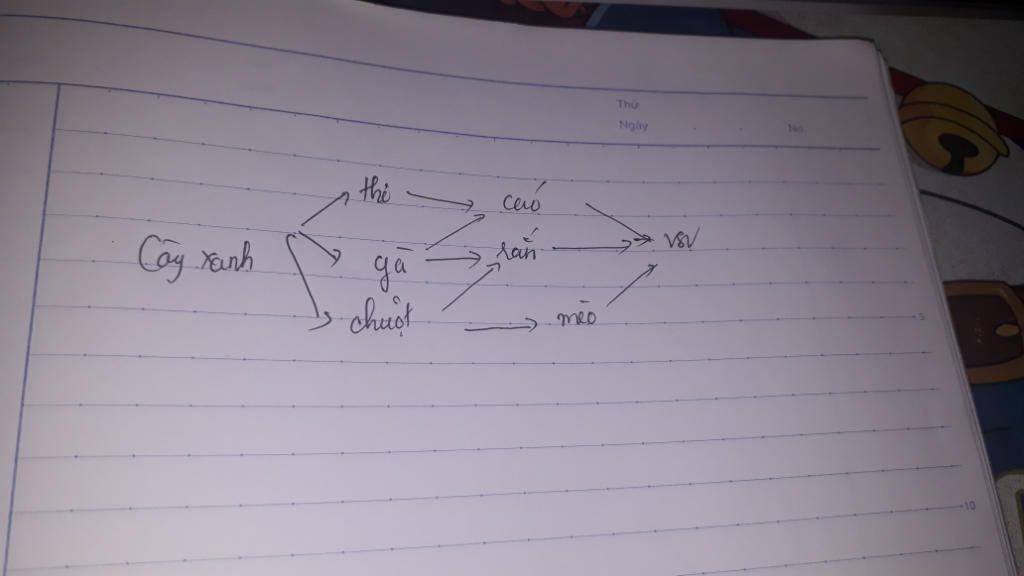 Thứ
Ngày No.
thỏ cáo
Cây xanh gà rắn vsv
chuột mèo
5
10